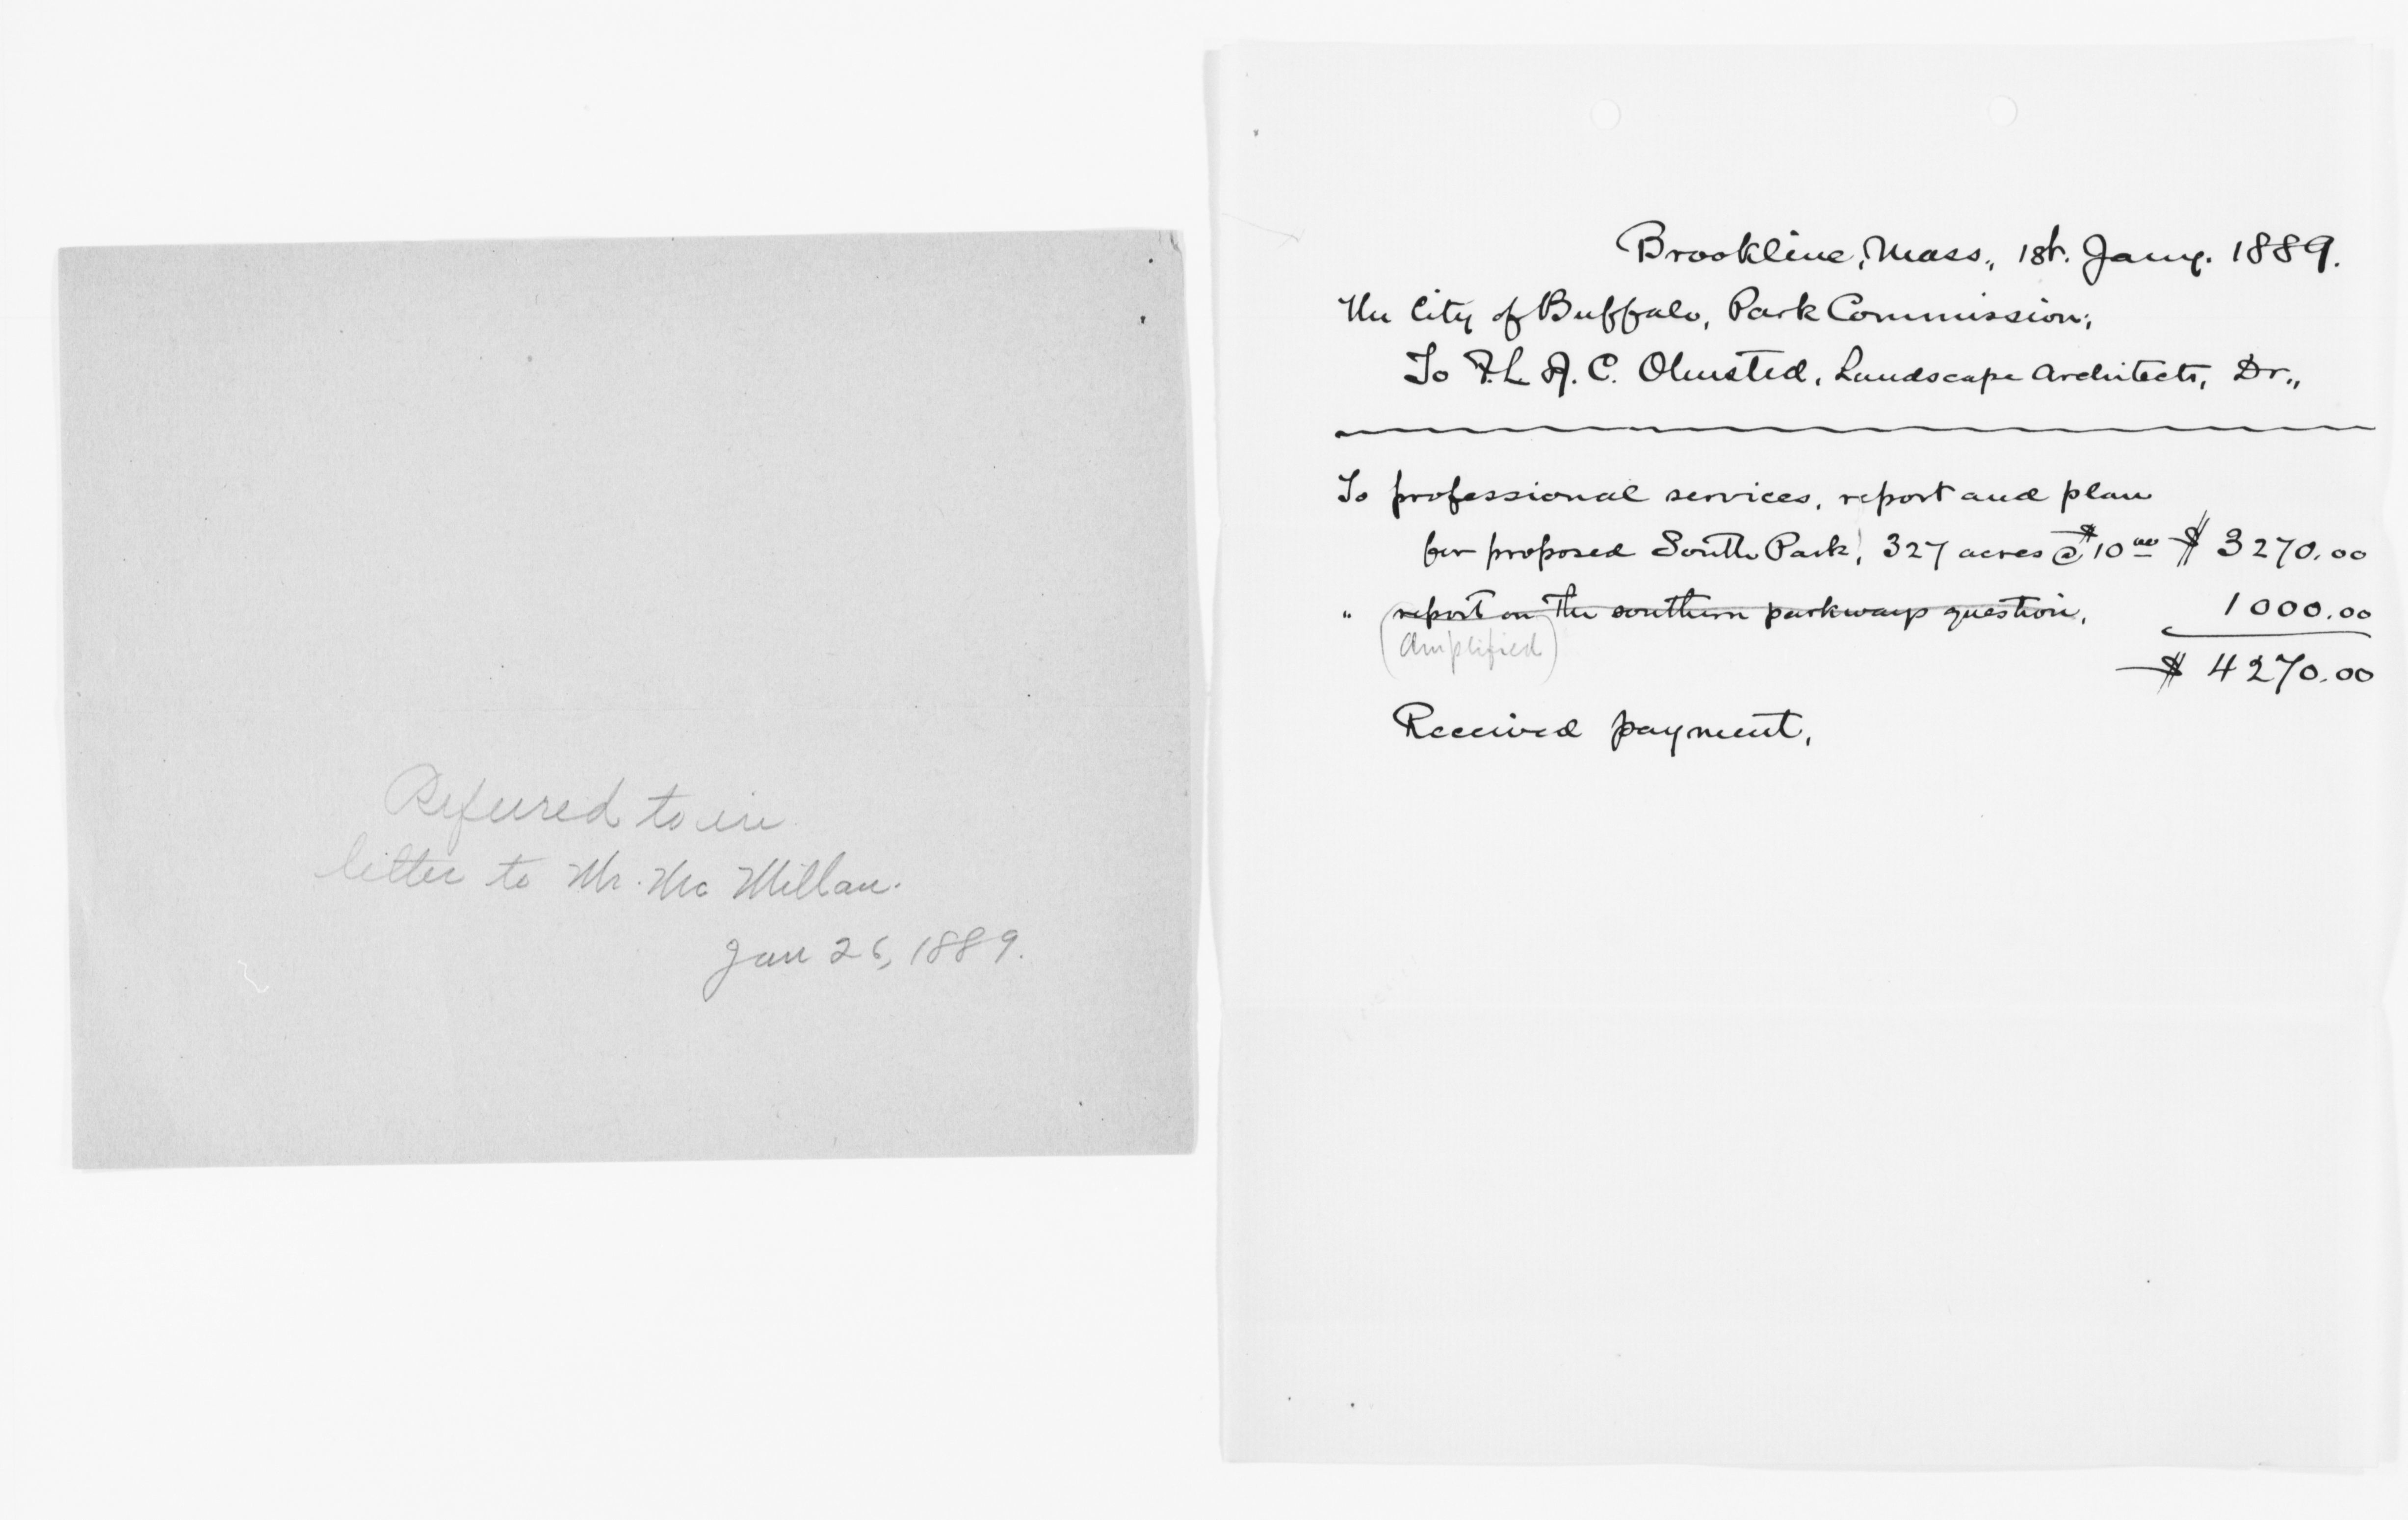 Referred to in
letter to Mr. Mc Millan.
Jan 26, 1889.
Brookline, Mass., 1st. Jany. 1889.
The City of Buffalo, Park Commission;
To F. L. & J. C. Olmsted, Landscape Architects, Dr.,
To professional services, report and plan
for proposed South Park, 327 acres @ $10 00 $ 3270.00
" report on the southern parkways question, 1000.00
(Amplified)
$ 4270.00
Received payment,